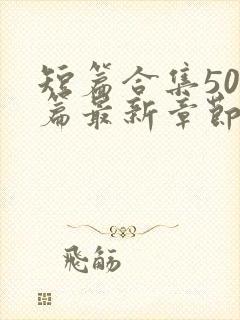 短篇合集50
篇最新章節
飛觞